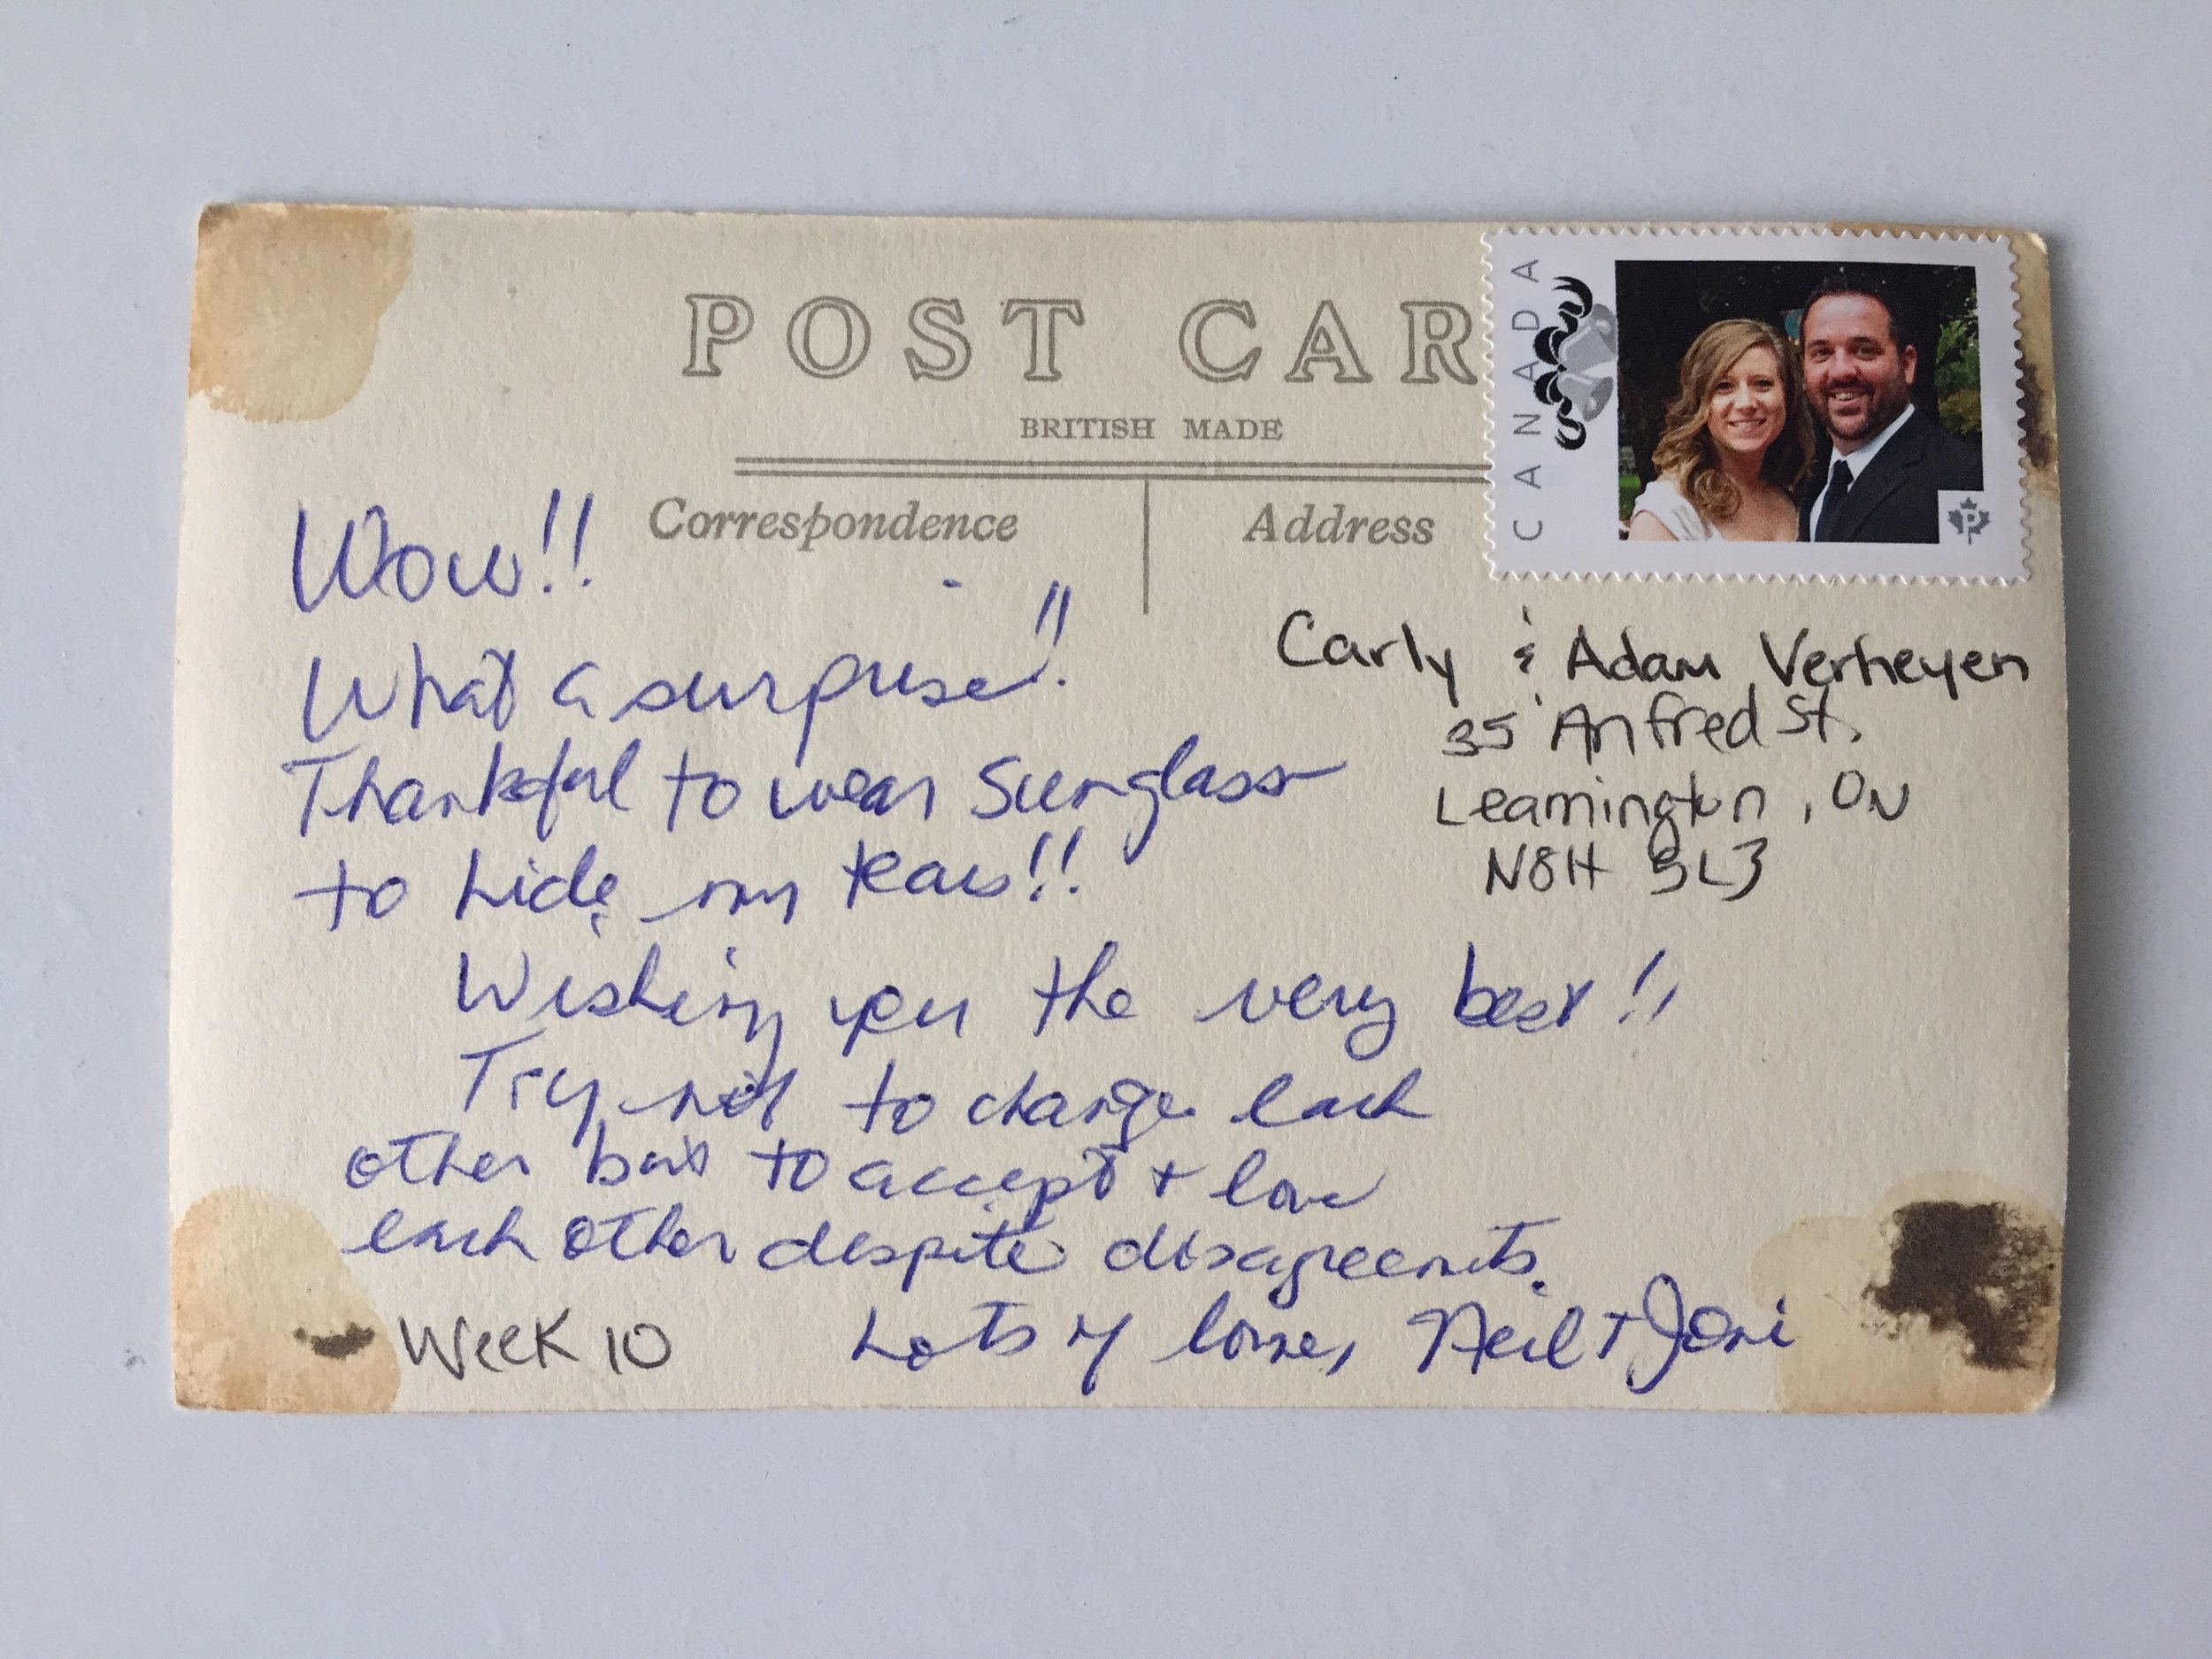 POST CAR
BRITISH MADE
Correspondence
Address
CANADA
P
Wow!!
What a surprise!!
Thankful to wear sunglass
to hide my tears!!
Wishing you the very best!!
Try not to change each
other but to accept + love
each other despite disagreemts.
Lots of love, Neil + Joni
Week 10
Carly & Adam Verheyen
35 Anfred St.
Leamington, ON
N8H 5L3